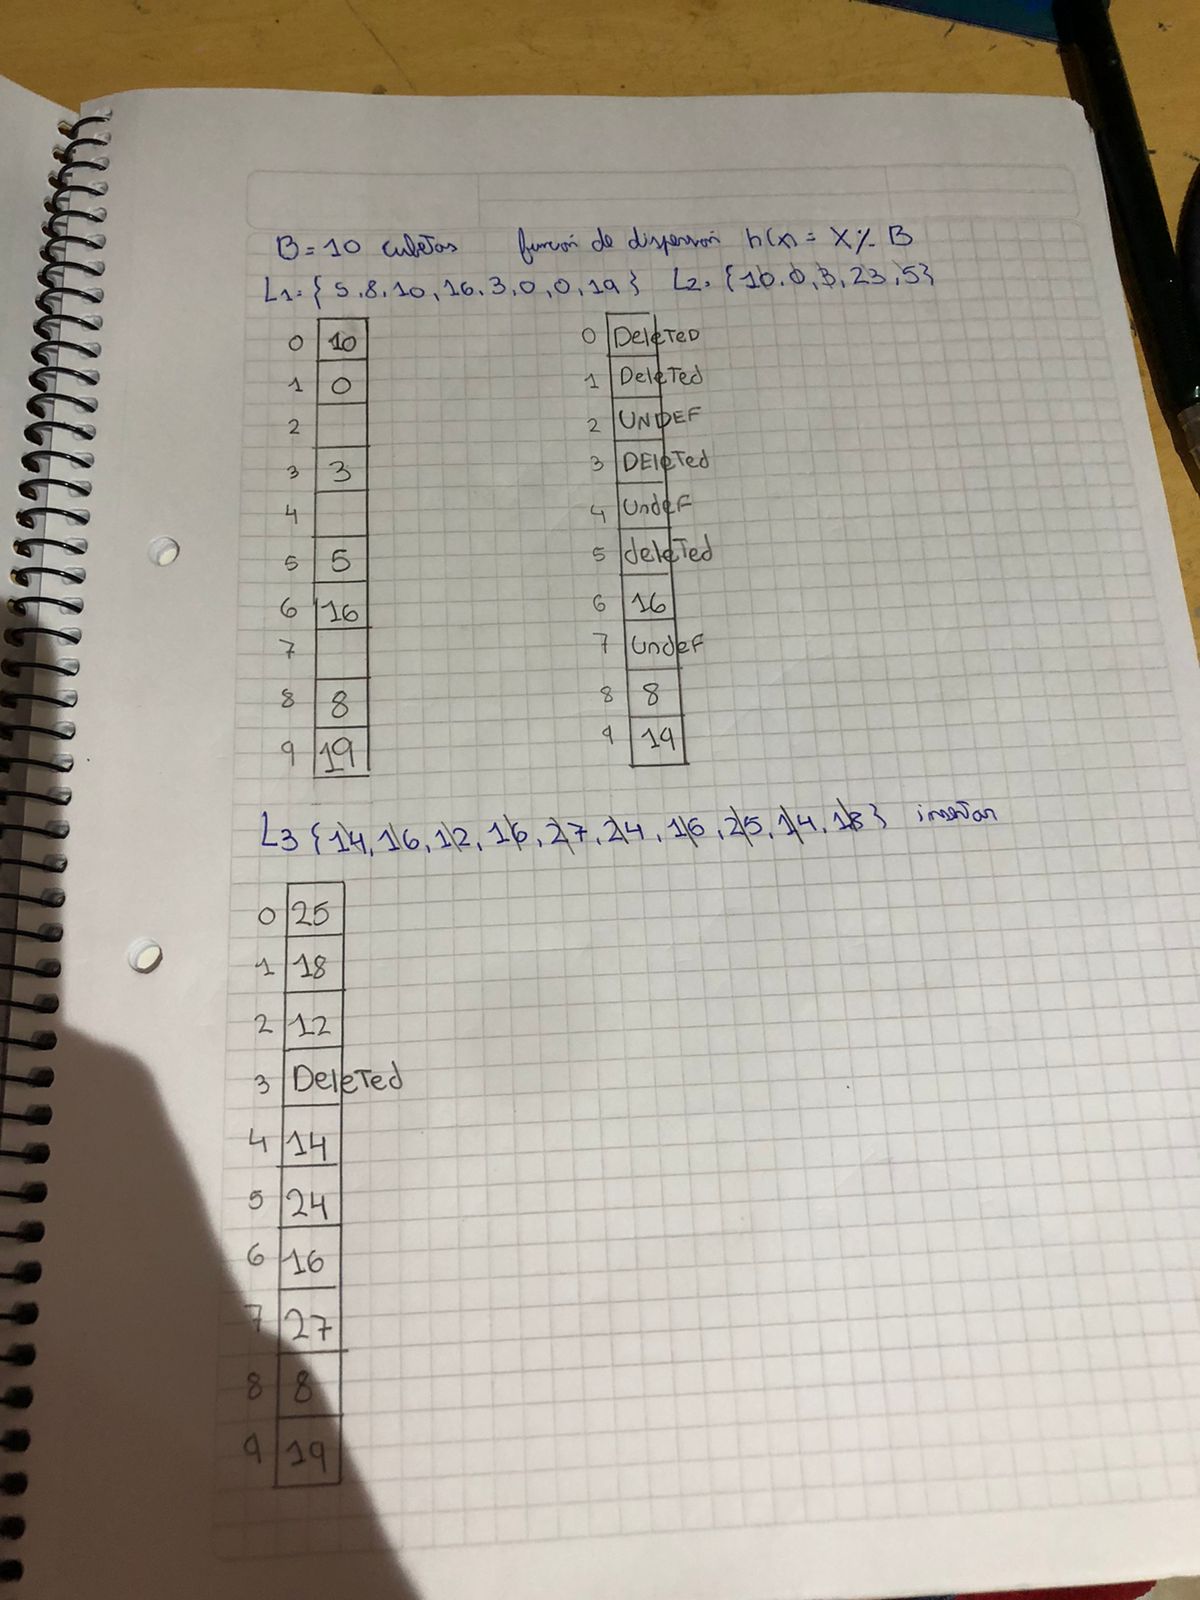 B = 10 cubetas función de dispersión h(x) = X % B
L1 = { 5, 8, 10, 16, 3, 0, 0, 19 } L2 = { 10, 0, 3, 23, 5 }
0 10
1 0
2
3 3
4
5 5
6 16
7
8 8
9 19
0 DeleTeD
1 DeleTed
2 UNDEF
3 DEleTed
4 UndeF
5 deleTed
6 16
7 UndeF
8 8
9 19
L3 { 14, 16, 12, 16, 27, 24, 16, 25, 14, 18 } insertar
0 25
1 18
2 12
3 DeleTed
4 14
5 24
6 16
7 27
8 8
9 19